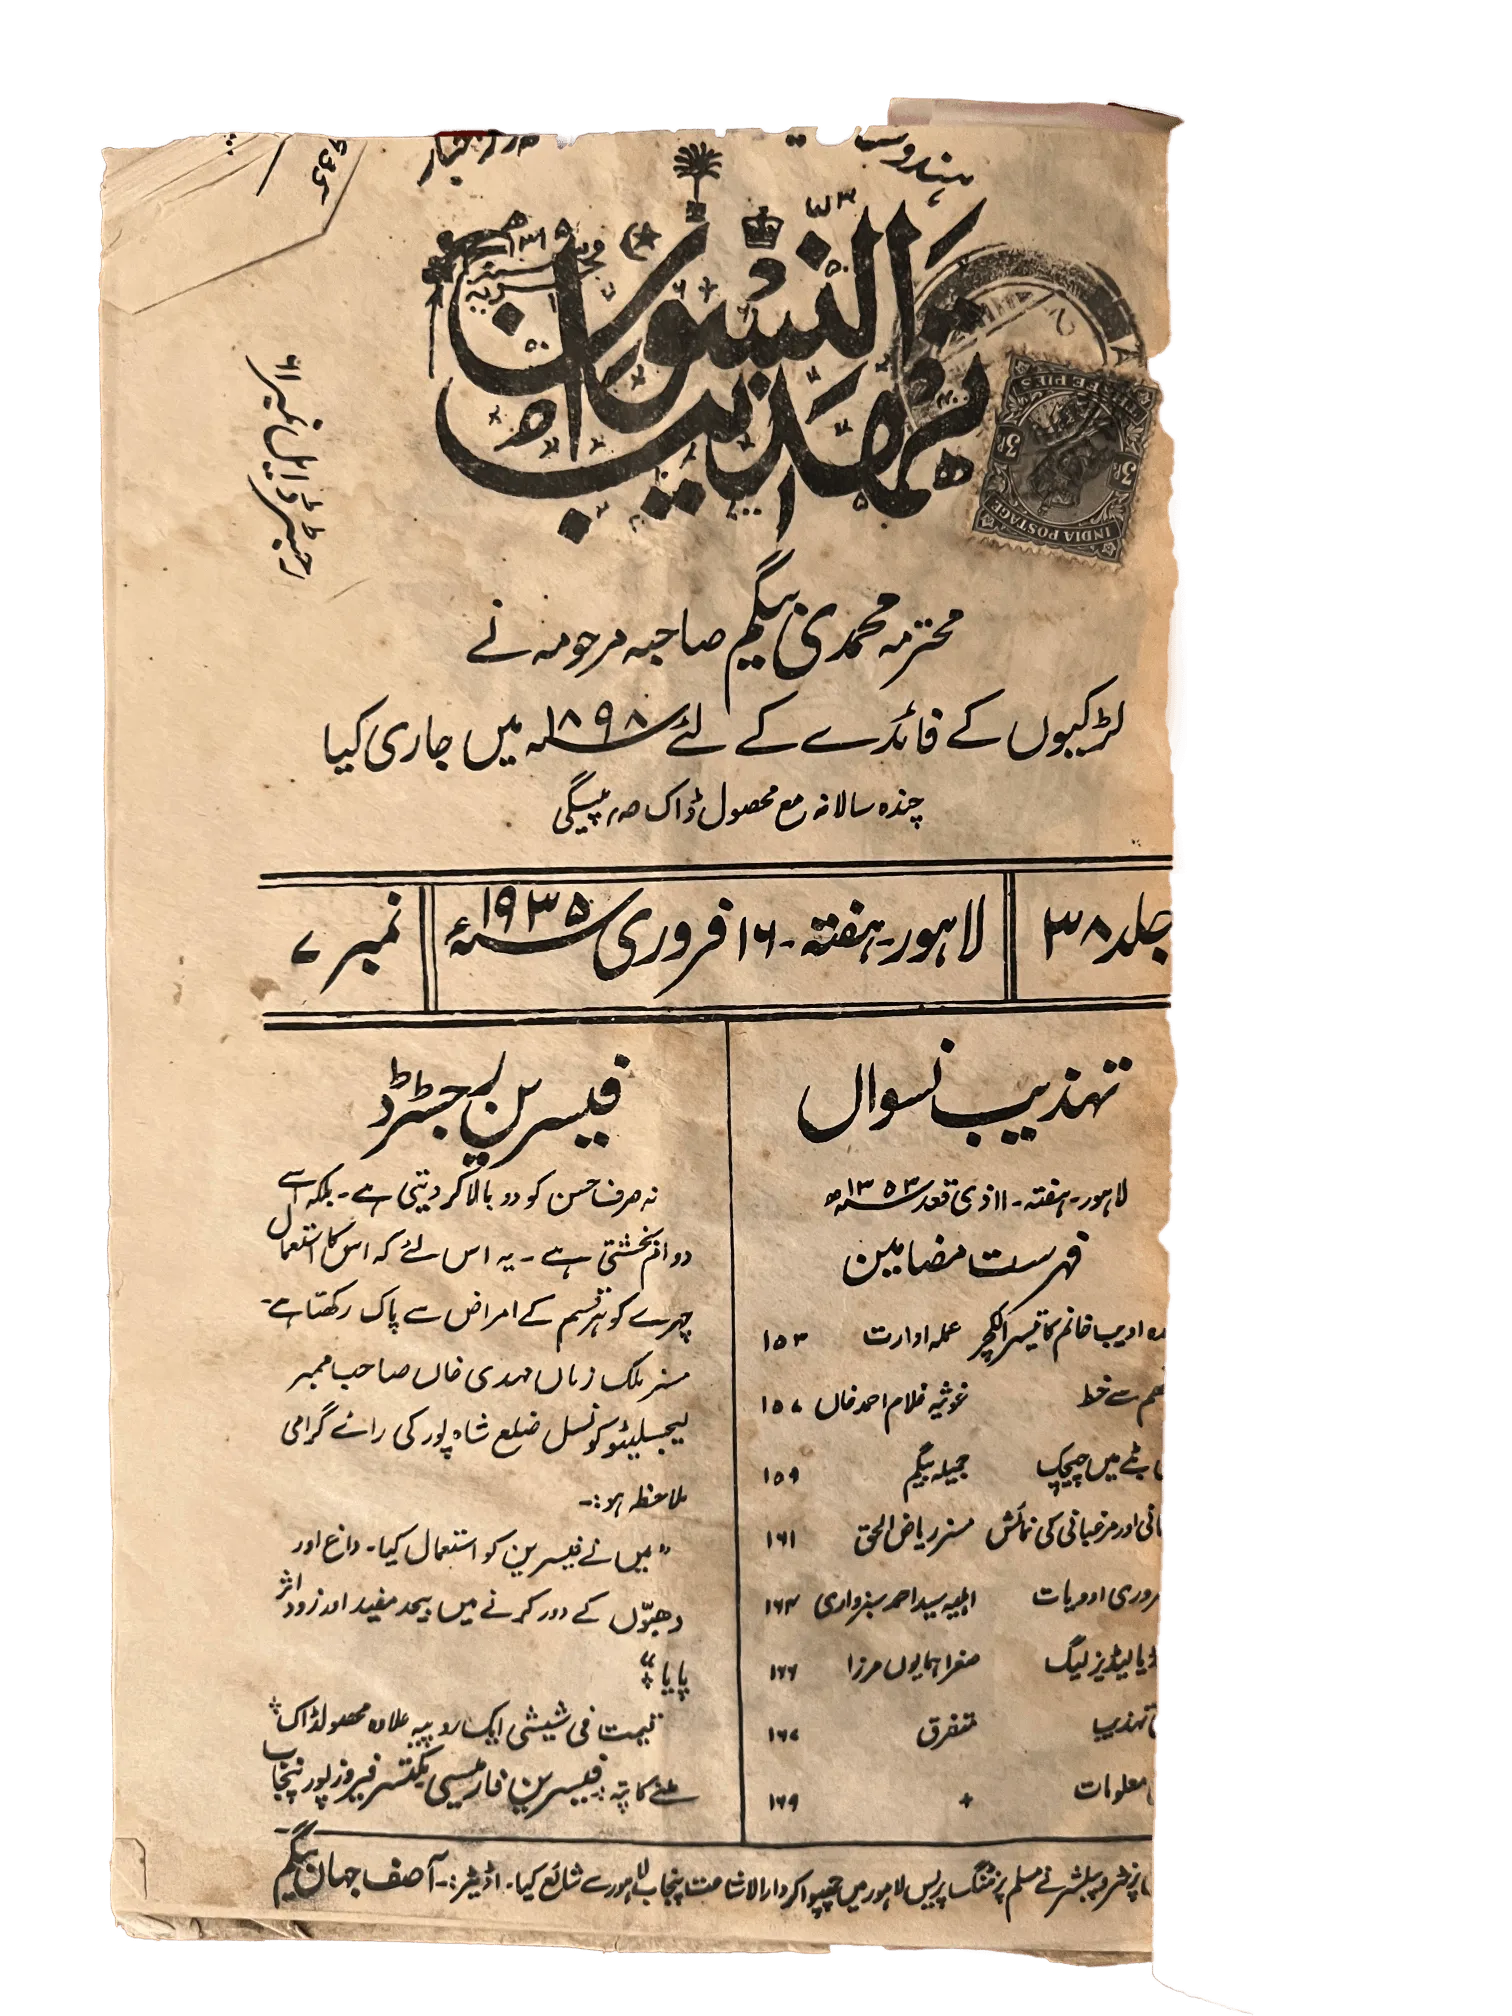 تہذیب النسواں
۱۳۱۵ھ
رجسٹرڈ ایل نمبر ۶۱
INDIA POSTAGE
THREE PIES
3P 3P
محترمہ محمدی بیگم صاحبہ مرحومہ نے
لڑکیوں کے فائدے کے لئے ۱۸۹۸ء میں جاری کیا
چندہ سالانہ مع محصول ڈاک صہ پیشگی
جلد ۳۸
لاہور۔ ہفتہ۔ ۱۶ فروری ۱۹۳۵ء
نمبر ۷
تہذیب نسواں
لاہور۔ ہفتہ۔ ۱۱ ذی قعد ۱۳۵۳ھ
فہرست مضامین
ادیب خانم کا تیسرا لکچر عملہ ادارت ۱۵۳
سے خط غوثیہ غلام احمد خاں ۱۵۷
میں چیچک جمیلہ بیگم ۱۵۹
اور مرغبانی کی نمائش مسز ریاض الحق ۱۶۱
ادویات اہلیہ سید احمد سبزواری ۱۶۴
لیڈیز لیگ صغرا ہمایوں مرزا ۱۶۶
تہذیب متفرق ۱۶۷
معلومات + ۱۶۹
فیسرین رجسٹرڈ
نہ صرف حسن کو دوبالا کر دیتی ہے۔ بلکہ اسے
دوام بخشتی ہے۔ یہ اس لئے کہ اس کا استعمال
چہرے کو ہر قسم کے امراض سے پاک رکھتا ہے۔
مسز ملک زماں مہدی خاں صاحب ممبر
لیجسلیٹو کونسل ضلع شاہ پور کی رائے گرامی
ملاحظہ ہو:۔
"میں نے فیسرین کو استعمال کیا۔ داغ اور
دھبّوں کے دور کرنے میں بیحد مفید اور زود اثر
پایا"
قیمت فی شیشی ایک روپیہ علاوہ محصولڈاک
ملنے کا پتہ: فیسرین فارمیسی فیروز پور پنجاب
پرنٹر و پبلشر نے مسلم پرنٹنگ پریس لاہور میں چھپوا کر دارالاشاعت پنجاب لاہور سے شائع کیا۔ اڈیٹر:۔ آصف جہاں بیگم